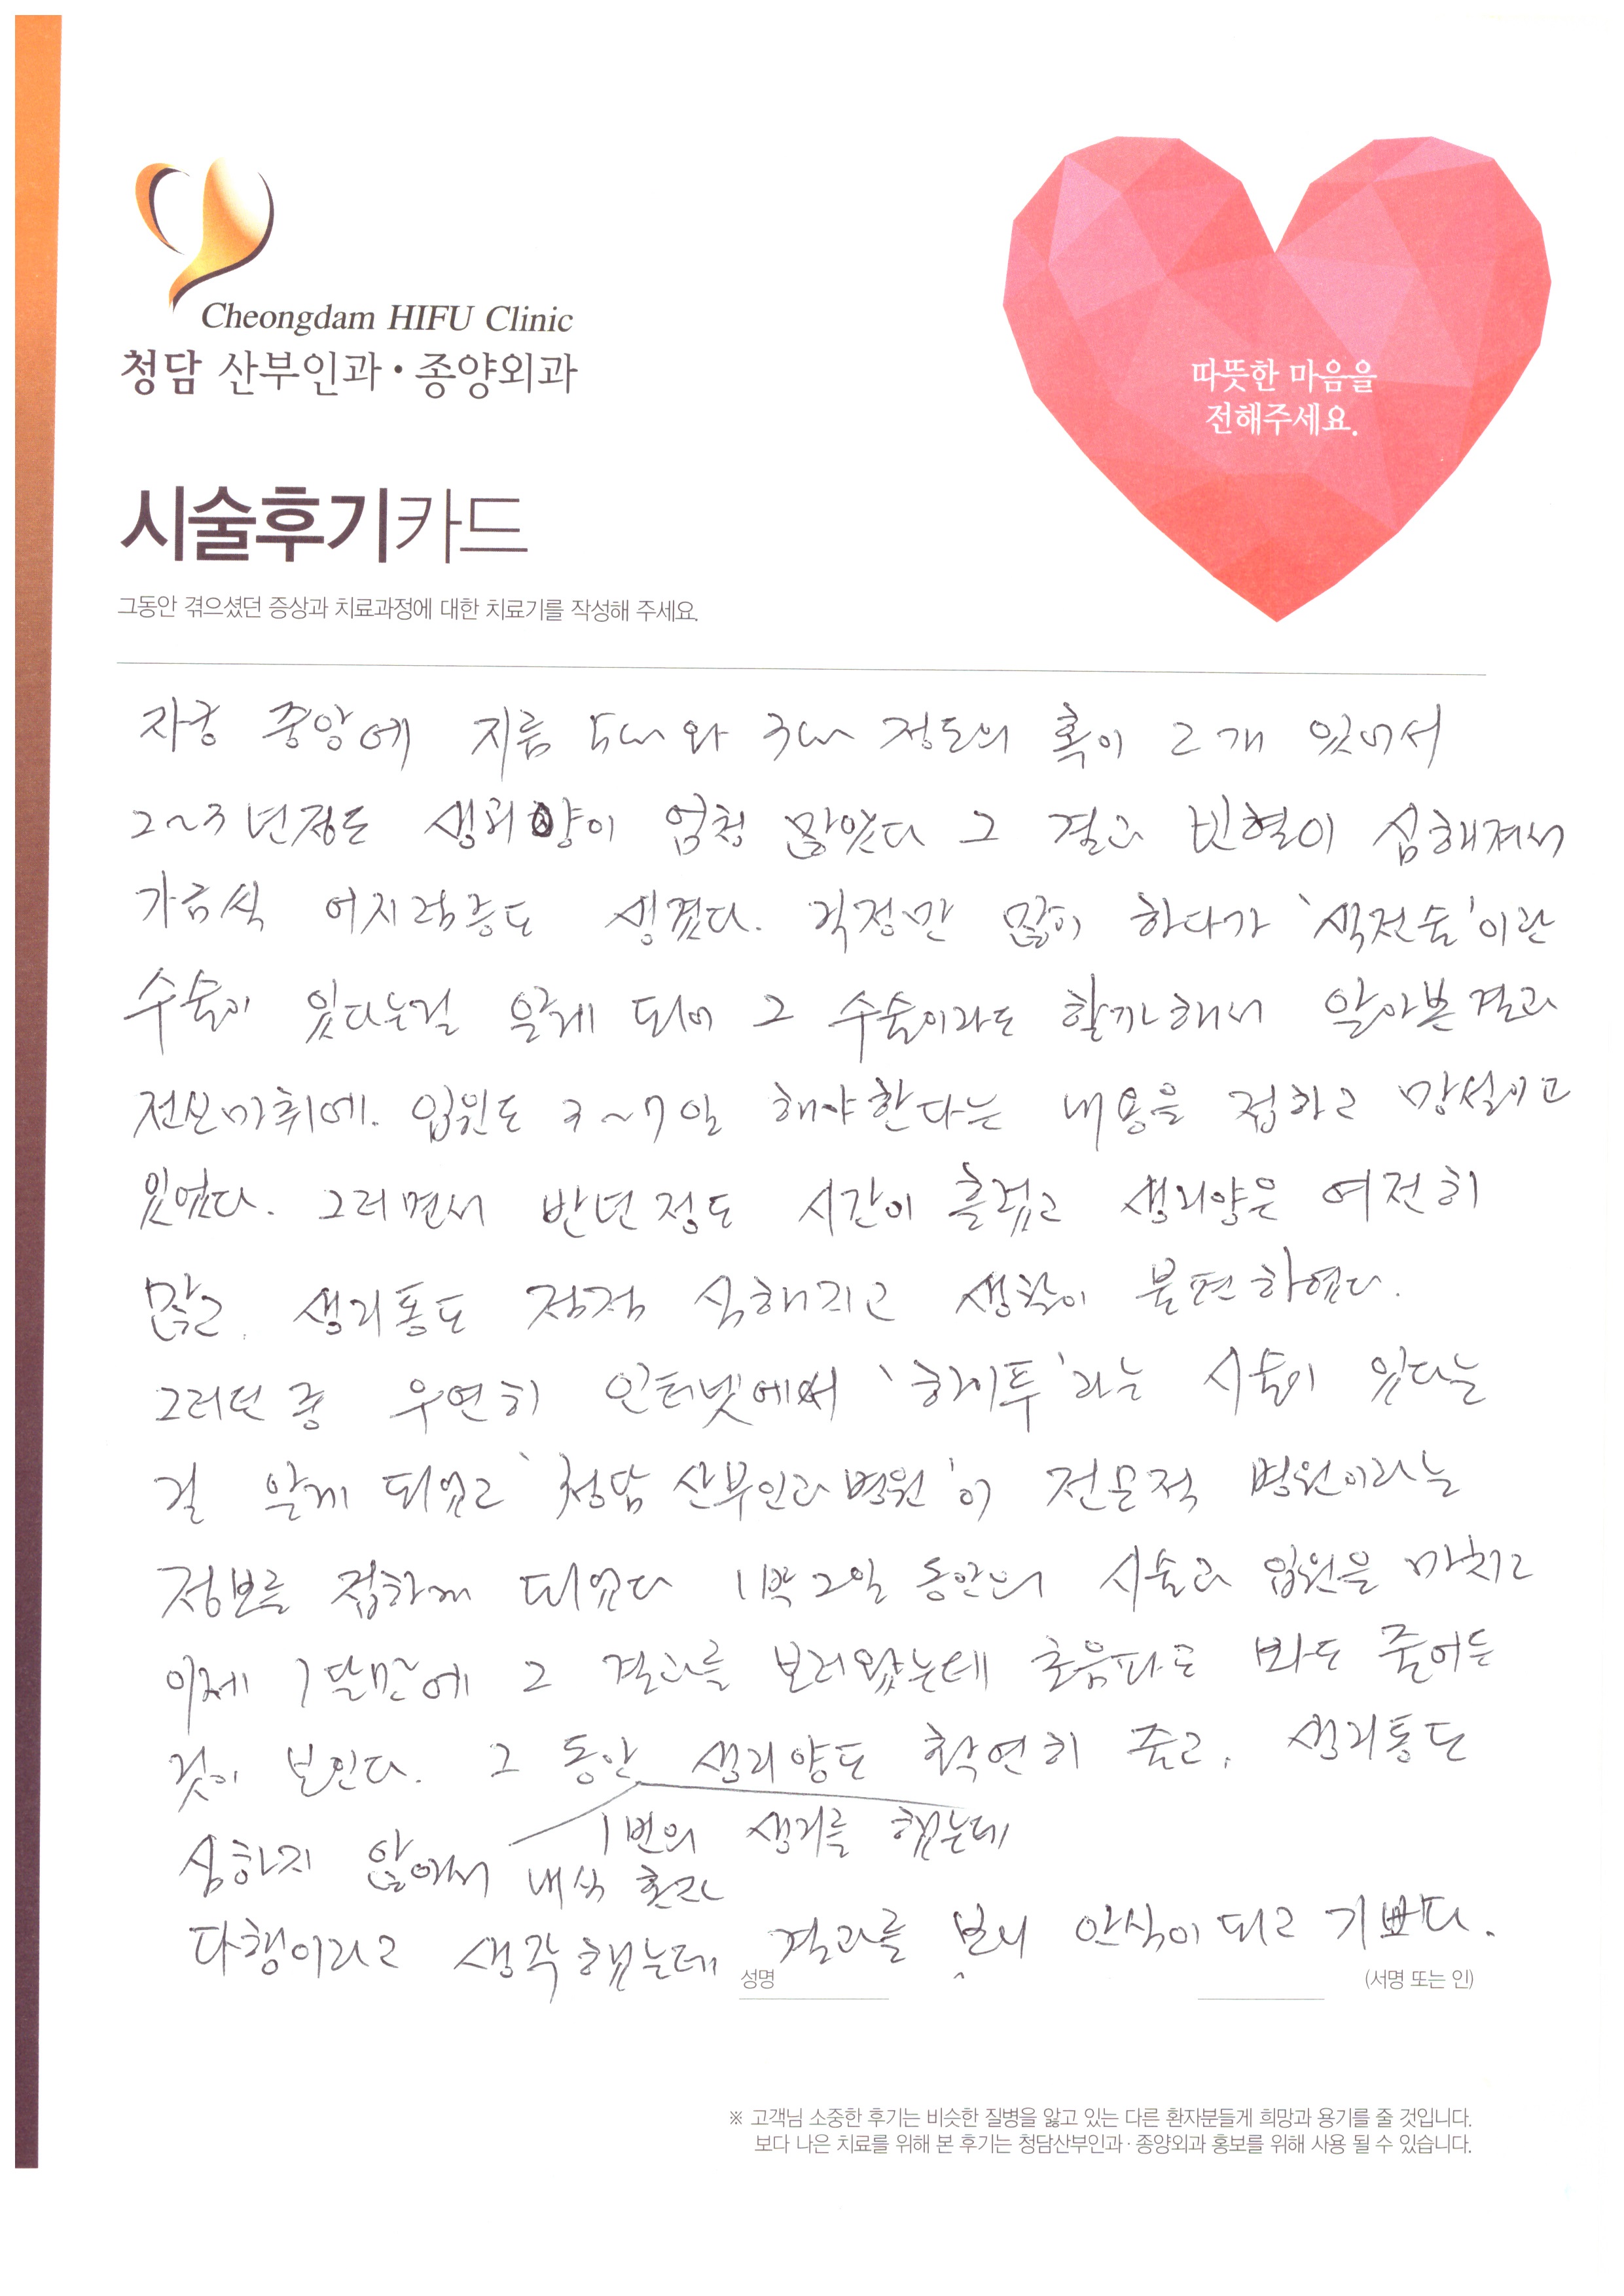 Cheongdam HIFU Clinic
청담 산부인과·종양외과
따뜻한 마음을
전해주세요.
시술후기카드
그동안 겪으셨던 증상과 치료과정에 대한 치료기를 작성해 주세요.
자궁 중앙에 지름 5cm와 3cm 정도의 혹이 2개 있어서
2~3년정도 생리양이 엄청 많았다 그 결과 빈혈이 심해져서
가끔씩 어지럼증도 생겼다. 걱정만 많이 하다가 '색전술'이란
수술이 있다는걸 알게 되어 그 수술이라도 할까해서 알아본결과
전신마취에. 입원도 3~7일 해야한다는 내용을 접하고 망설이고
있었다. 그러면서 반년정도 시간이 흘렀고 생리양은 여전히
많고, 생리통도 점점 심해지고 생활이 불편하였다.
그러던 중 우연히 인터넷에서 '하이푸'라는 시술이 있다는
걸 알게 되었고 '청담 산부인과병원'이 전문적 병원이라는
정보를 접하게 되었다 1박 2일 동안의 시술과 입원을 마치고
이제 1달만에 그 결과를 보러왔는데 초음파로 봐도 줄어든
것이 보인다. 그 동안 생리양도 확연히 줄고, 생리통도
1번의 생리를 했는데
심하지 않아서 내심 효과
다행이라고 생각했는데 결과를 보니 안심이 되고 기쁘다.
성명 (서명 또는 인)
※ 고객님 소중한 후기는 비슷한 질병을 앓고 있는 다른 환자분들게 희망과 용기를 줄 것입니다.
보다 나은 치료를 위해 본 후기는 청담산부인과·종양외과 홍보를 위해 사용 될 수 있습니다.